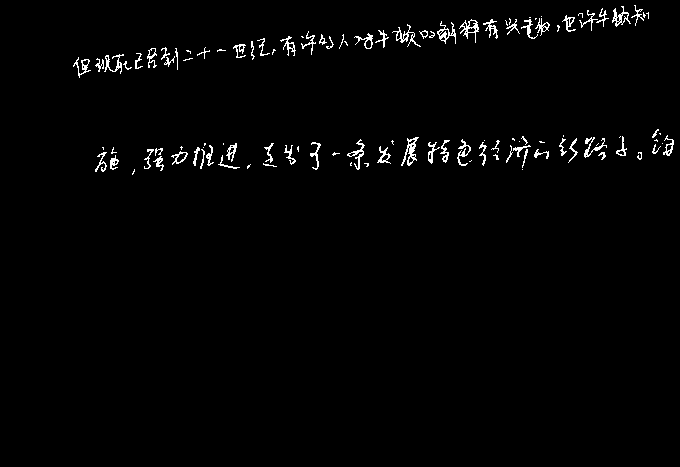 但现在已经到二十一世纪,有许多人对牛顿的解释有兴趣,也许牛顿知
施,强力推进,走出了一条发展特色经济的新路子。